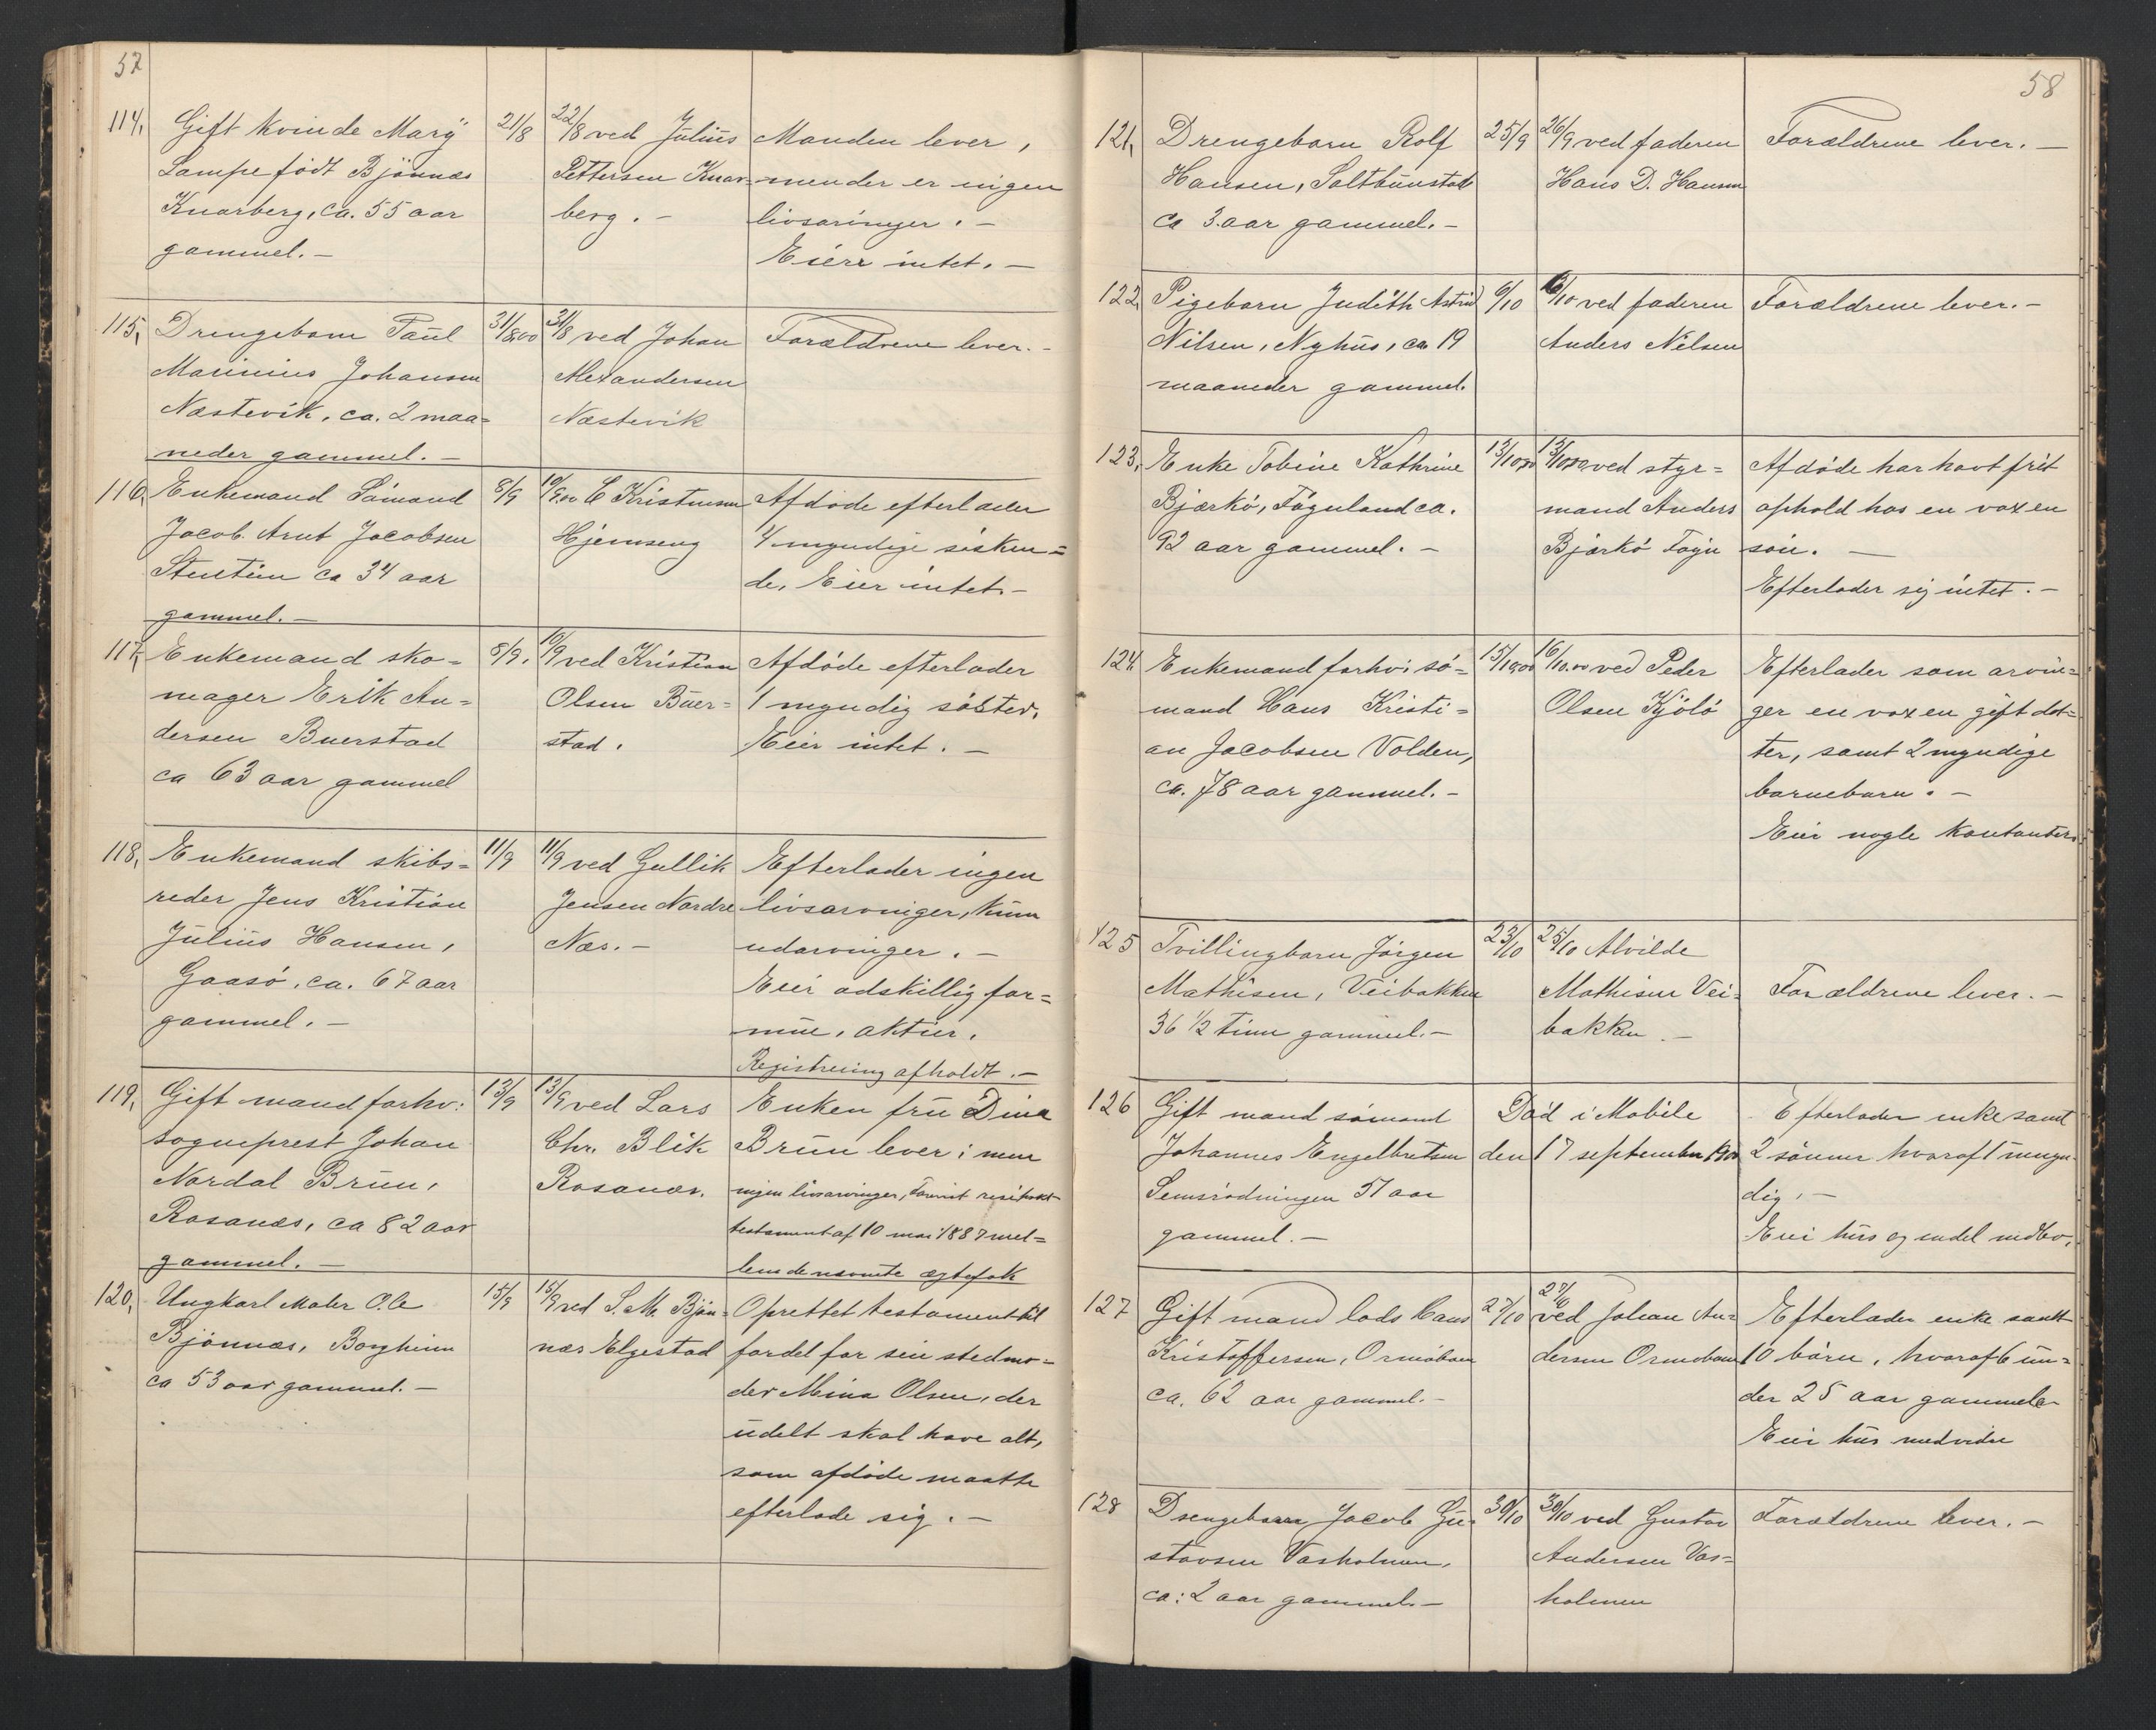 57
114, Gift kvinde Mary 21/8 22/8 ved Julius Manden lever,
Lampe født Bjönnæs Pettersen Knar- men der er ingen
Knarberg, ca. 55 aar berg. - livsarvinger. -
gammel. - Eier intet. -
115, Drengebarn Paul 31/8.00 31/8 ved Johan Forældrene lever. -
Marinius Johansen Alexandersen
Næstevik, ca. 2 maa= Næstevik
neder gammel. -
116, Enkemand Sömand 8/9 10/9.00 C Kristensen Afdøde efterlader
Jacob Arnt Jacobsen Hjemseng 4 myndige sösken=
ca 34 aar de. Eier intet. -
gammel. -
117, Enkemand sko= 8/9. 10/9 ved Kristian Afdøde efterlader
mager Erik An= Olsen Buer= 1 myndig söster.
dersen Buerstad stad. Eier intet. -
ca 63 aar gammel
118, Enkemand skibs= 11/9 11/9 ved Gullik Efterlader ingen
reder Jens Kristian Jensen Nordre livsarvinger, kun
Julius Hansen, Næs. - udarvinger. -
Gaasö, ca. 67 aar Eier adskillig for=
gammel. - mue, aktier.
Registrering afholdt. -
119, Gift mand forhv: 13/9 13/9 ved Lars Enken fru Dina
sogneprest Johan Chr. Blik Brun lever; men
Nordal Brun, Rosanæs. ingen livsarvinger,
Rosanæs, ca 82 aar testament af 10 mai 1887 mel=
gammel. - lem de nævnte ægtefolk
120, Ungkarl Maler Ole 15/9 15/9 ved S. M. Bjön= Oprettet testament til
Bjönnæs, Borgheim næs Elgestad fordel for sin stedmo=
ca 53 aar gammel. - der Mina Olsen, der
udelt skal have alt,
som afdöde maatte
efterlade sig. -
58
121, Drengebarn Rolf 25/9 26/9 ved faderen Forældrene lever. -
Hansen, Saltbunstad Hans D. Hansen
ca 3 aar gammel. -
122, Pigebarn Judith Astrid 6/10 6/10 ved faderen Forældrene lever. -
Nilsen, Nyhus, ca 19 Anders Nilsen
maaneder gammel.
123, Enke Tobine Kathrine 13/10.00 15/10.00 ved styr= Afdöde har havt frit
Bjærkö, Föynland ca. mand Anders ophold hos en voxen
92 aar gammel. - Bjærkö sön. -
Efterlader sig intet. -
124. Enkemand forhv. sö= 15/10.00 16/10.00 ved Peder Efterlader som arvin=
mand Hans Kristi= Olsen Kjölö ger en voxen gift dat=
an Jacobsen Volden, ter, samt 2 myndige
ca. 78 aar gammel. - barnebarn. -
Eier nogle kontanter.
125 Tvillingbarn Jörgen 23/10 25/10 Alvilde
Mathisen, Veibakken Mathisen Vei= Forældrene lever. -
36 1/2 time gammel. - bakken -
126 Gift mand sömand Död i Mobile Efterlader enke samt
Johannes Engelbretsen den 17 september 1900 2 sönner hvoraf 1 umyn=
Semsrödningen 51 aar dig. -
gammel. - Eier hus og endel indbo.
127 Gift mand lods Hans 27/10 27/10 ved Johan An= Efterlader enke samt
Kristoffersen, Ormöbaen dersen Ormobaen 10 börn, hvoraf 6 un=
ca. 62 aar gammel. - der 25 aar gammele
Eier hus medvidre
128 Drengebarn Jacob Gu= 30/10 30/10 ved Gustav Forældrene lever. -
stavsen Vasholmen, Andersen Vas=
ca: 2 aar gammel. - holmen